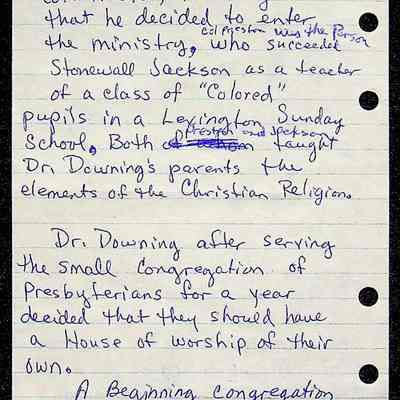 that he decided to enter
the ministry, Col Preston was the Person who succeeded
Stonewall Jackson as a teacher
of a class of "Colored"
pupils in a Lexington Sunday
School. Both of whom Preston and Jackson taught
Dr. Downing's parents the
elements of the Christian Religion.
Dr. Downing after serving
the small congregation of
Presbyterians for a year
decided that they should have
a House of worship of their
own.
A Beginning Congregation